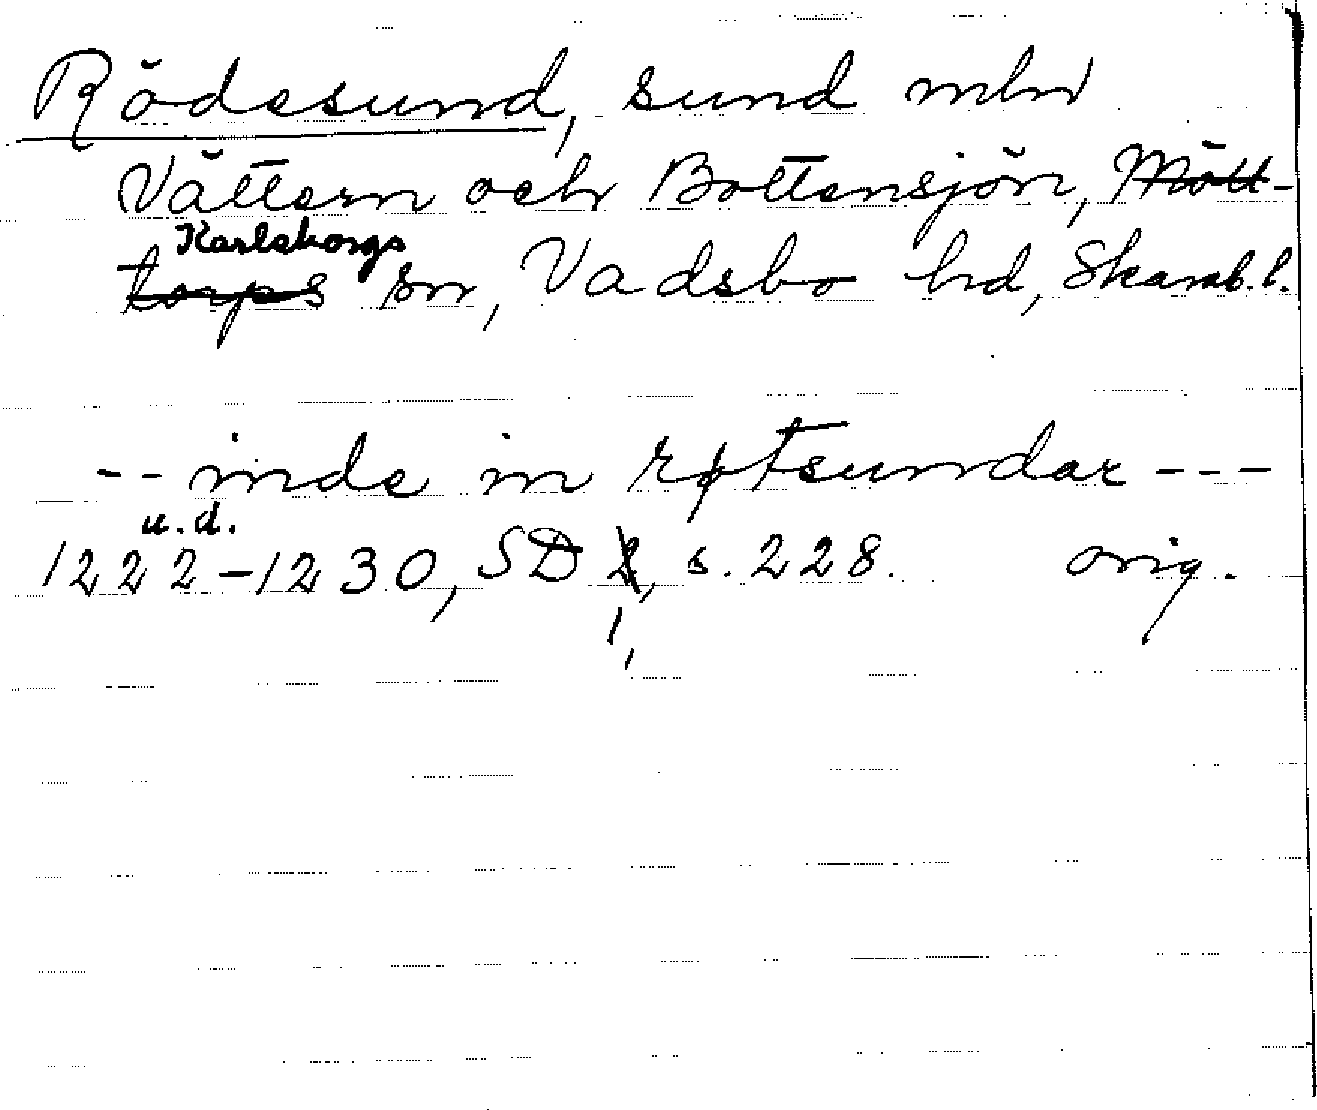 Rödesund, sund mln
Vättern och Bottensjön, Mölt-
Karlsborgs
torps sn, Vadsbo hd, Skarab. l.
-- inde in røtsundar ---
u.d.
1222-1230, SD 2, s. 228. orig.
1,